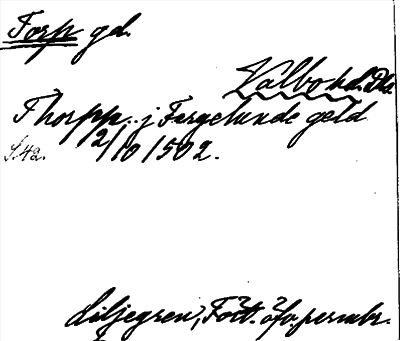 Torp gd.
Valbo hd. Dls
Thorpp. j Fergelunde geld
2/10 1502.
S. 42.
Liljegren, Fört. öfv. permbr.